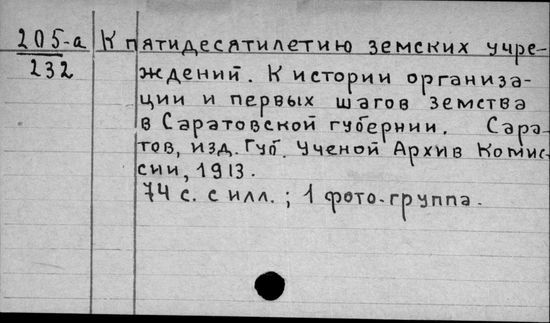 205-а К пятидесятилетию земских учре-
232 ждений. К истории организа-
ции и первых шагов земства
в Саратовской губернии. Сара-
тов, изд. Губ. Ученой Архив Комис-
сии, 1913.
74 с. с илл.; 1 фото-группа.